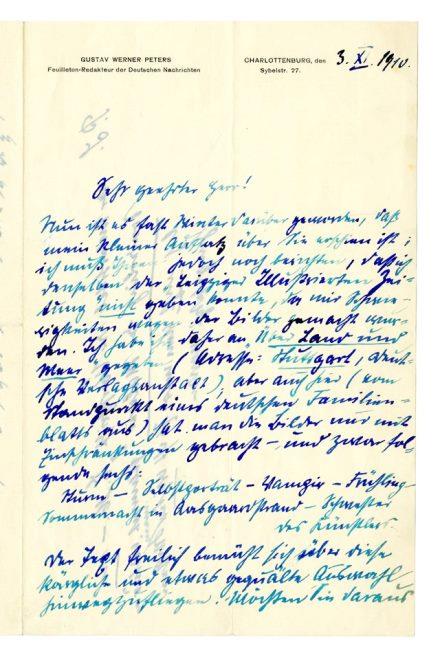 GUSTAV WERNER PETERS
Feuilleton-Redakteur der Deutschen Nachrichten
CHARLOTTENBURG, den 3. XI. 1910.
Sybelstr. 27.
Sehr geehrter Herr!
Nun ist es fast Winter darüber geworden, daß
mein kleiner Aufsatz über Sie erschienen ist;
ich muß Ihnen jedoch noch berichten, daß ich
denselben der Leipziger Illustrierten Zei-
tung nicht geben konnte, da mir Schwie-
rigkeiten wegen der Bilder gemacht wur-
den. Ich habe ihn daher an Über Land und
Meer gegeben (Adresse: Stuttgart, Deut-
sche Verlagsanstalt), aber auch hier (vom
Standpunkt eines deutschen Familien-
blatts aus) hat man die Bilder nur mit
Einschränkungen gebracht – und zwar fol-
gende sechs:
Sturm – Selbstporträt – Vampir – Frühling –
Sommernacht in Aasgaardstrand – Schwester
des Künstlers.
Der Text freilich bemüht sich über diese
kärgliche und etwas gequälte Auswahl
hinwegzufliegen. Möchten Sie daraus